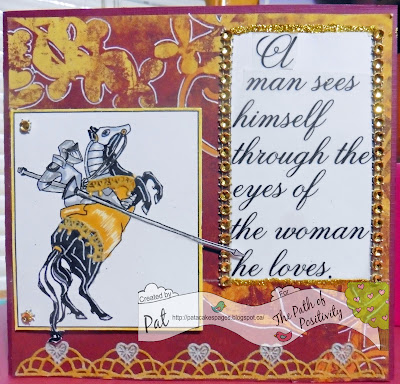 A
man sees
himself
through the
eyes of
the woman
he loves.
Created by
Pat
http://patacakespages.blogspot.ca/
For
The Path of
Positivity